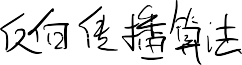 反向传播算法